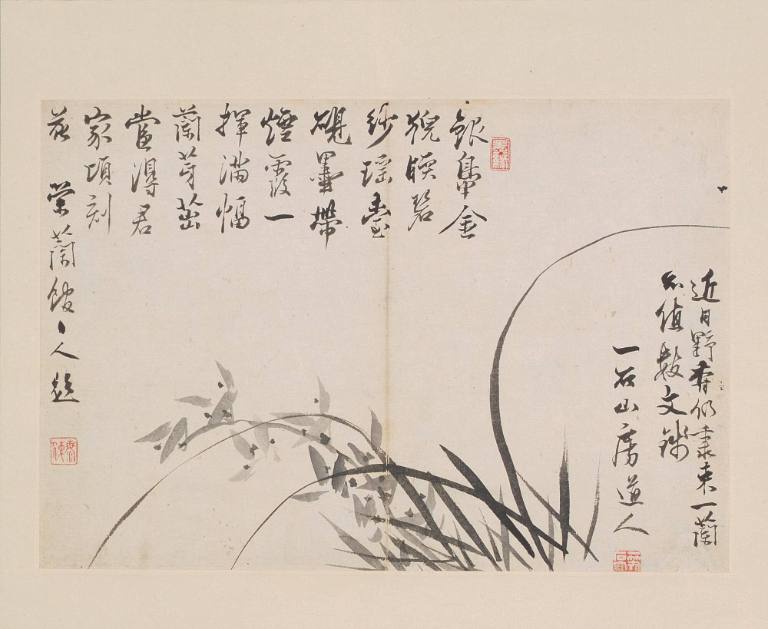 近日野仍束一蘭
不值數文錢
一石山房道人
銀鳧金
猊暎碧
紗瑤臺
硯墨帶
煙霞一
揮滿幅
蘭芽茁
當得君
家頃刻
花 蘭館人題